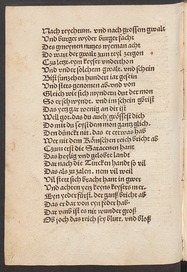 Nach reychtum, vnd nach grossem gwalt
Vnd burger wyder burger facht
Des gmeynen nutzes nyeman acht
Do wart der gwalt zum teyl zergon
Zu letst eym keyser vnderthon
Vnd vnder solchem gwalt, vnd schein
Bisz funzehen hundert iar gesein
Vnd stets genomen ab vnd
Gleich wie sich myndern dut der mon
So er schwyndt, vnd im schein gbrist
Das yetz gar wenig an der ist
Well got, das du auch grössest dich
Do mit du seyst dem mon gantz glich.
Den dünckt nit, das er ettwas hab
Wer nit dem Römschen reich bricht ab
Zum erst die Saracenen hant
Das heylig vnd gelobt landt
Dar nach die Türcken handt so vil
Das als zu zalen, nem vil weil
Vil stett sich bracht hant in gwer
Vnd achten yetz keyns keysers mer.
Eyn yeder fürst, der gantz bricht ab
Das er dar von eyn feder hab
Dar vmb ist es nit wunder grosz
Ob joch das reich sey blutt, vnd blosz